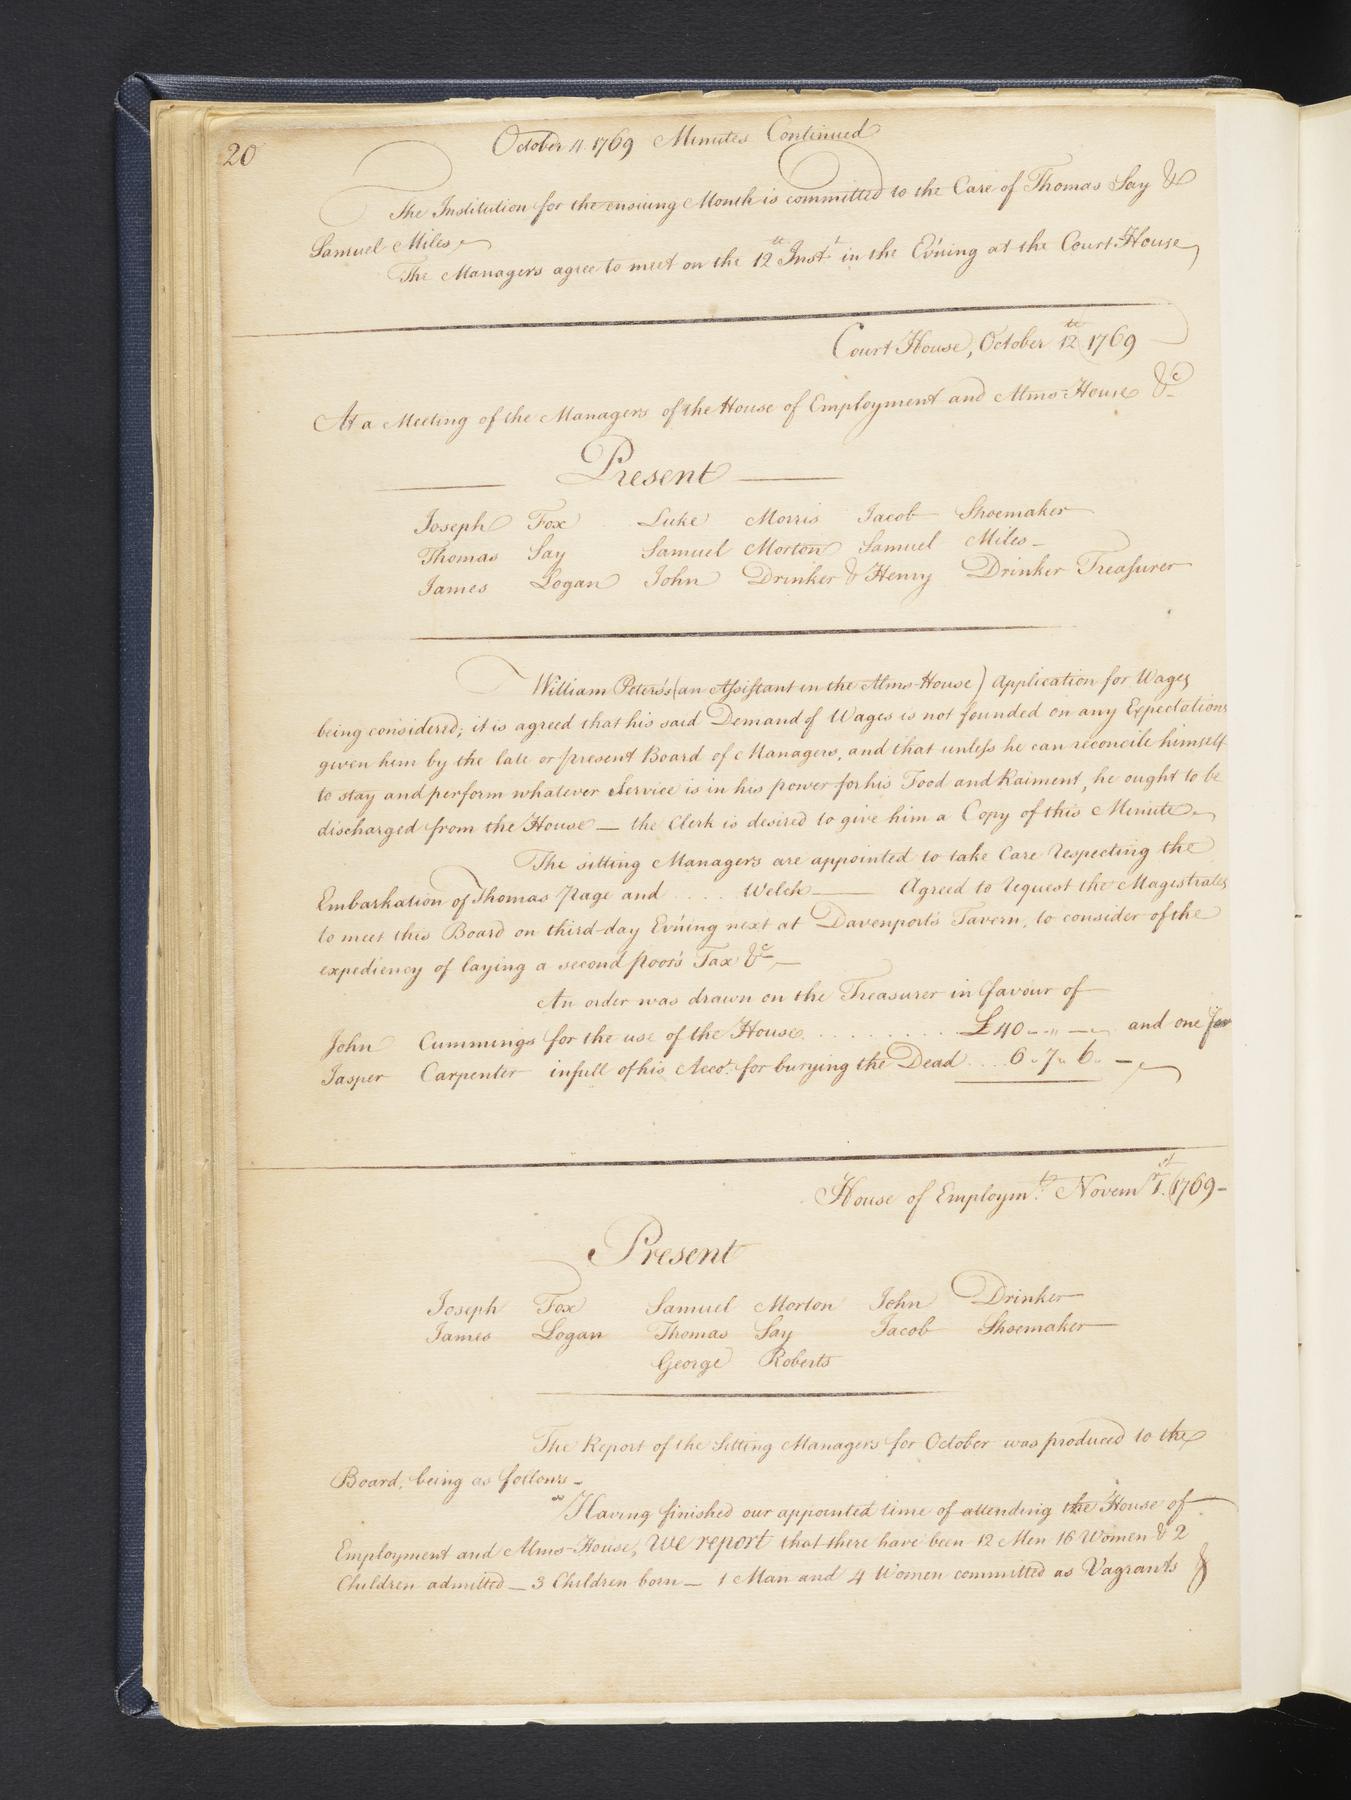 20
October 4. 1769 Minutes Continued
The Institution for the ensuing Month is committed to the Care of Thomas Say &
Samuel Miles
The Managers agree to meet on the 12th Inst in the Ev'ning at the Court House
Court House, October 12th 1769
At a Meeting of the Managers of the House of Employment and Alms-House &c
Present
Joseph Fox Luke Morris Jacob Shoemaker
Thomas Say Samuel Morton Samuel Miles
James Logan John Drinker & Henry Drinker Treasurer
William Peters's (an Assistant in the Alms-House) Application for Wages
being considered; it is agreed that his said Demand of Wages is not founded on any Expectations
given him by the late or present Board of Managers, and that unless he can reconcile himself
to stay and perform whatever Service is in his power for his Food and Raiment, he ought to be
discharged from the House — the Clerk is desired to give him a Copy of this Minute
The sitting Managers are appointed to take Care respecting the
Embarkation of Thomas Page and .... Welch — Agreed to request the Magistrates
to meet this Board on third-day Ev'ning next at Davenport's Tavern, to consider of the
expediency of laying a second poor's Tax &c —
An order was drawn on the Treasurer in favour of
John Cummings for the use of the House . . . . . . . . £40 - " - and one for
Jasper Carpenter in full of his Acco.t for burying the Dead .... 6 . 7 . 6 . —
House of Employm.t Novem.r 1.st 1769 -
Present
Joseph Fox Samuel Morton John Drinker
James Logan Thomas Say Jacob Shoemaker
George Roberts
The Report of the Sitting Managers for October was produced to the
Board, being as follows -
"Having finished our appointed time of attending the House of
Employment and Alms-House, We report that there have been 12 Men 16 Women & 2
Children admitted — 3 Children born — 1 Man and 4 Women committed as Vagrants &